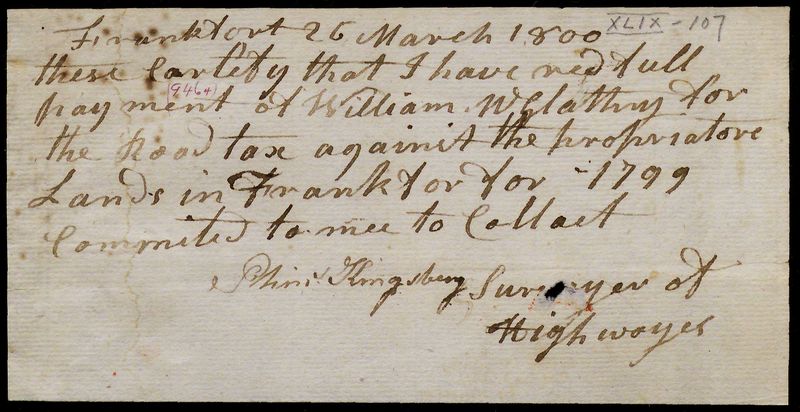 Frankfort 26 March 1800 XLIX-107
these Cartefy that I have recd full
9464
payment of William McGlathry for
the Road tax against the propriatore
Lands in Frankfor for 1799
Commited to mee to Collact
Phins Kingsbery Surveyer of
Highwayes